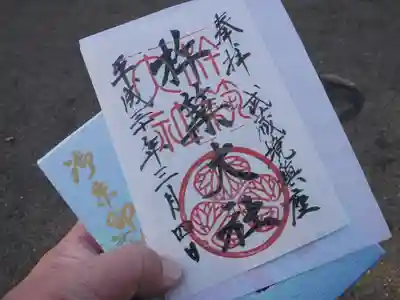 奉拝
武蔵境鎮座
杵築大社
平成三十年三月四日
御朱印